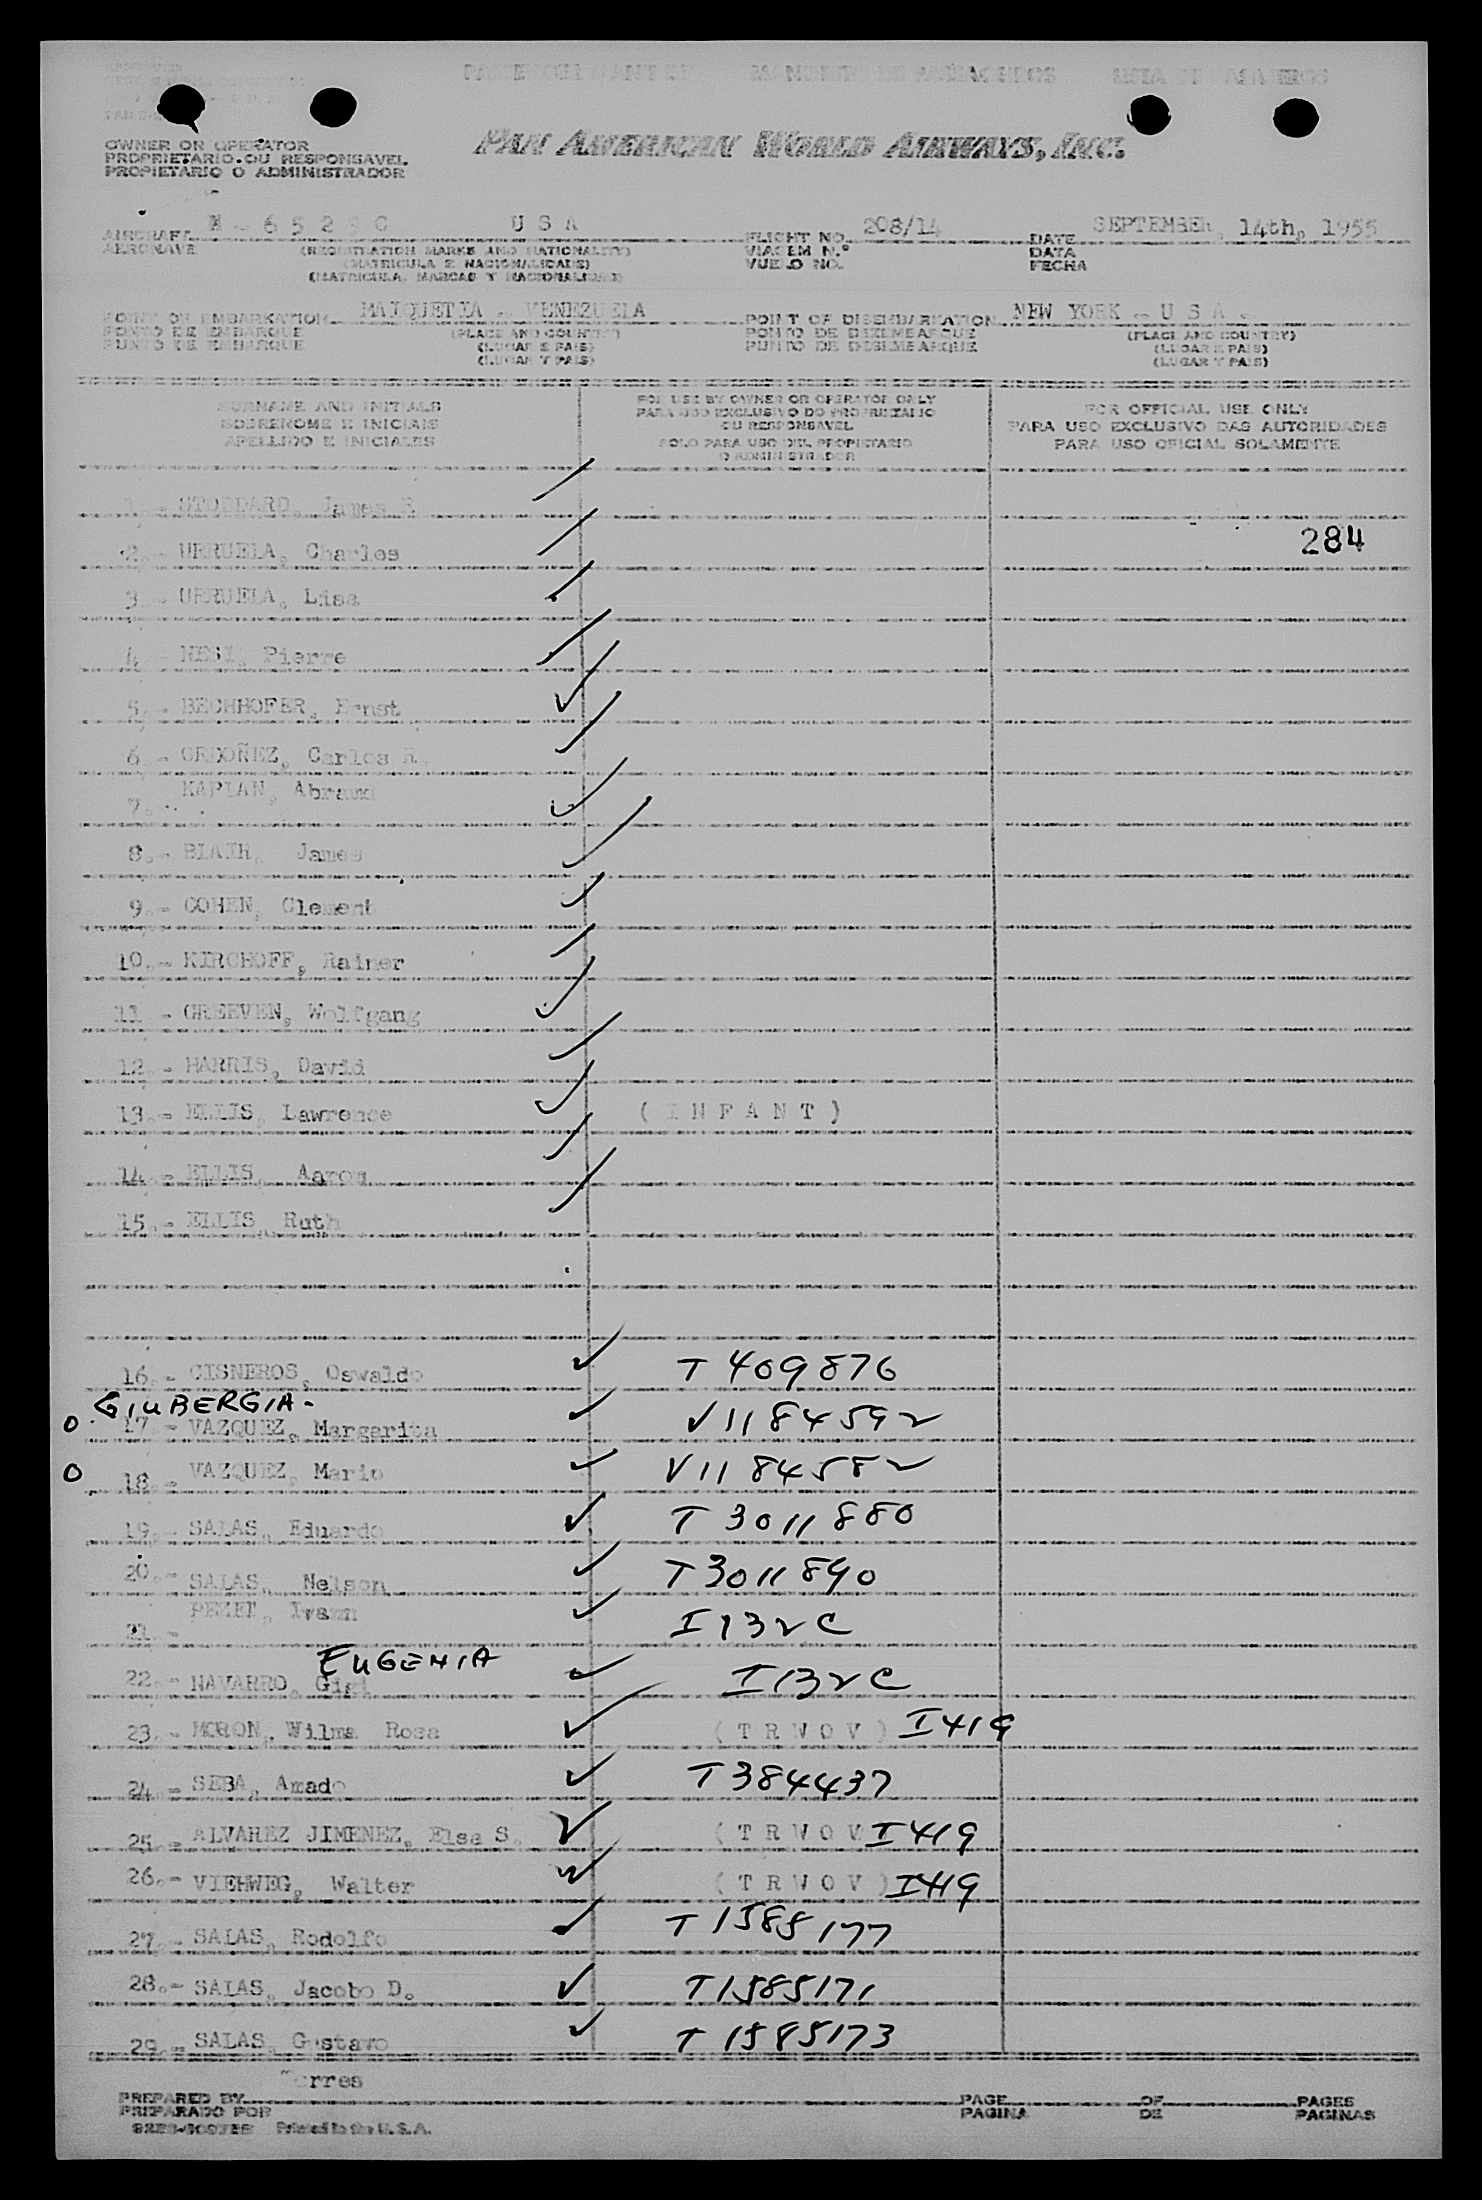 PASSENGER MANIFEST MANIFESTO DE PASSAGEIROS LISTA DE PASAJEROS
OWNER OR OPERATOR
PROPRIETARIO OU RESPONSAVEL
PROPIETARIO O ADMINISTRADOR
PAN AMERICAN WORLD AIRWAYS, INC.
AIRCRAFT N - 6 5 2 C U S A FLIGHT NO. 208/14 DATE SEPTEMBER, 14th, 1955
AERONAVE (REGISTRATION MARKS AND NATIONALITY) VIAGEM N.º DATA
(MATRICULA E NACIONALIDADE) VUELO NO. FECHA
(MATRICULA, MARCAS Y NACIONALIDAD)
POINT OF EMBARKATION MAIQUETIA - VENEZUELA POINT OF DISEMBARKATION NEW YORK - U S A -
PONTO DE EMBARQUE (PLACE AND COUNTRY) PONTO DE DESEMBARQUE (PLACE AND COUNTRY)
PUNTO DE EMBARQUE (LUGAR E PAIS) PUNTO DE DESEMBARQUE (LUGAR E PAIS)
(LUGAR Y PAIS) (LUGAR Y PAIS)
SURNAME AND INITIALS FOR USE BY OWNER OR OPERATOR ONLY FOR OFFICIAL USE ONLY
SOBRENOME E INICIAIS PARA USO EXCLUSIVO DO PROPRIETARIO PARA USO EXCLUSIVO DAS AUTORIDADES
APELLIDO E INICIALES OU RESPONSAVEL PARA USO OFICIAL SOLAMENTE
SOLO PARA USO DEL PROPIETARIO
O ADMINISTRADOR
1.- STODDARD, James R
2.- URRUELA, Charles 284
3.- URRUELA, Lisa
4.- NESI, Pierre
5.- BECHHOFER, Ernst
6.- ORDOÑEZ, Carlos R.
7.- KAPLAN, Abraum
8.- BLAIR, James
9.- COHEN, Clement
10.- KIRCHOFF, Rainer
11.- GREEVEN, Wolfgang
12.- HARRIS, David
13.- ELLIS, Lawrence ( I N F A N T )
14.- ELLIS, Aaron
15.- ELLIS, Ruth
16.- CISNEROS, Oswaldo T 409876
GIUBERGIA-
O 17.- VAZQUEZ, Margarita V1184592
O 18.- VAZQUEZ, Mario V1184582
19.- SALAS, Eduardo T 3011880
20.- SALAS, Nelson T3011890
21.- PEZET, I132C
EUGENIA
22.- NAVARRO, Gigi I132C
23.- MORON, Wilma Rosa ( T R W O V ) I419
24.- SEBA, Amado T384437
25.- ALVAREZ JIMENEZ, Elsa S. ( T R W O V I419
26.- VIEHWEG, Walter ( T R W O V ) I419
27.- SALAS, Rodolfo T1585177
28.- SALAS, Jacobo D. T1585171
29.- SALAS, Gustavo T 1585173
Torres
PREPARED BY PAGE OF PAGES
PREPARADO POR PAGINA DE PAGINAS
Printed in the U.S.A.